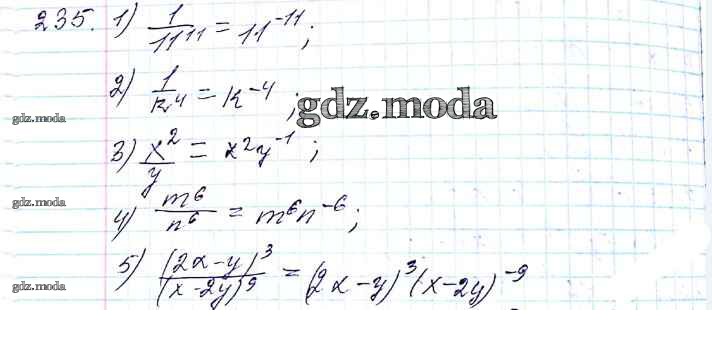 235. 1) 1/11¹¹ = 11⁻¹¹;
2) 1/k⁴ = k⁻⁴;
gdz.moda
gdz.moda
3) x²/y = x²y⁻¹;
gdz.moda
4) m⁶/n⁶ = m⁶n⁻⁶;
5) (2x-y)³/(x-2y)⁹ = (2x-y)³(x-2y)⁻⁹
gdz.moda